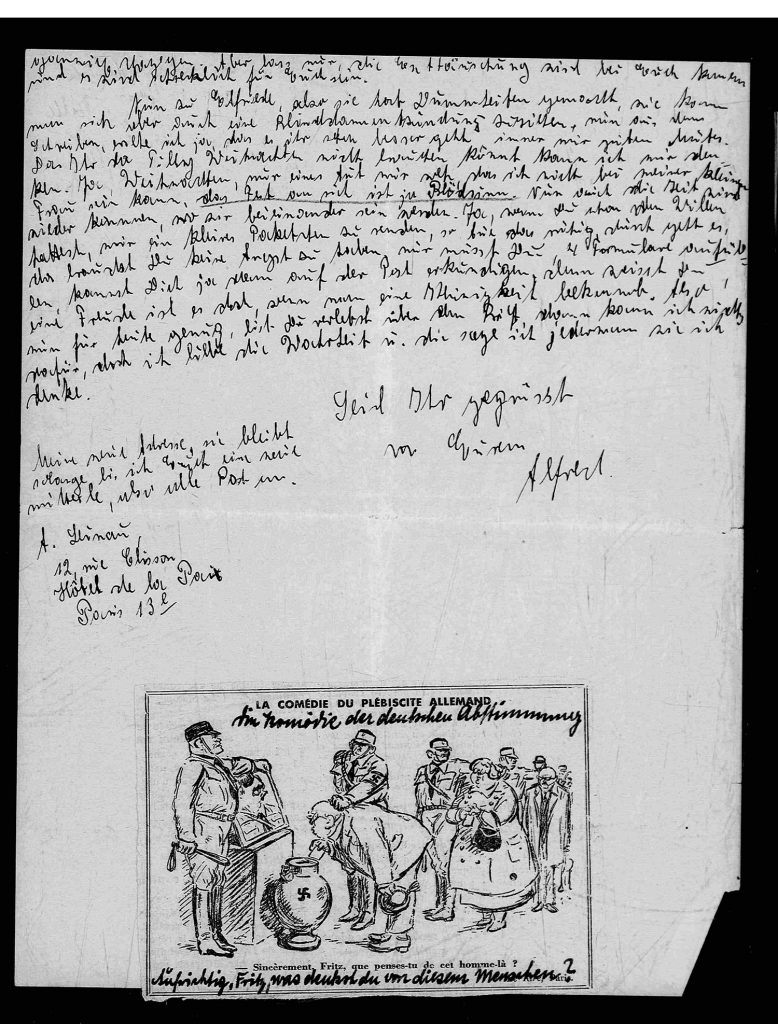 und es wird schrecklich für Euch sein.
Nun zu Elfriede, also sie hat Dummheiten gemacht, wie kann
man sich aber auch eine Blinddarmentzündung zuziehen, nun aus dem
Schreiben, sollte ich ja, das es ihr schon besser geht immer nur guten Mutes.
Das Ihr da Weihnachten nicht könnt kann ich mir den-
ken. Ja, Weihnachten, nur eines tut mir weh, das ich nicht bei meiner kleinen
Frau sein kann, das Fest an sich ist ja Blödsinn. Nun auch die Zeit wird
wieder kommen, wo wir beieinander sein werden. Ja, wenn Du etwa den Willen
hattest, mir ein kleines Packetchen zu senden, so tue das ruhig, durch geht es,
da brauchst Du keine Angst zu haben nur müsst Du 4 Formulare ausfül-
len, kannst Dich ja dann auf der Post erkundigen, denn weisst Du
eine Freude ist es doch, wenn man eine Kleinigkeit bekommt. Also
nun für heute genug, bist Du verletzt über den Brief, dann kann ich nichts
dafür, doch ich liebe die Wahrheit u. die sage ich jedermann wie ich
denke.
Seid Ihr gegrüsst
von Eurem
Alfred.
Meine neue Adresse, sie bleibt
solange bis ich Euch eine neue
mitteile, also alle Post an.
A.
12, rue Clisson
Hôtel de la Paix
Paris 13e
LA COMÉDIE DU PLÉBISCITE ALLEMAND
Die Komödie der deutschen Abstimmung
Sincèrement, Fritz, que penses-tu de cet homme-là ?
Aufrichtig, Fritz, was denkst du von diesem Menschen?